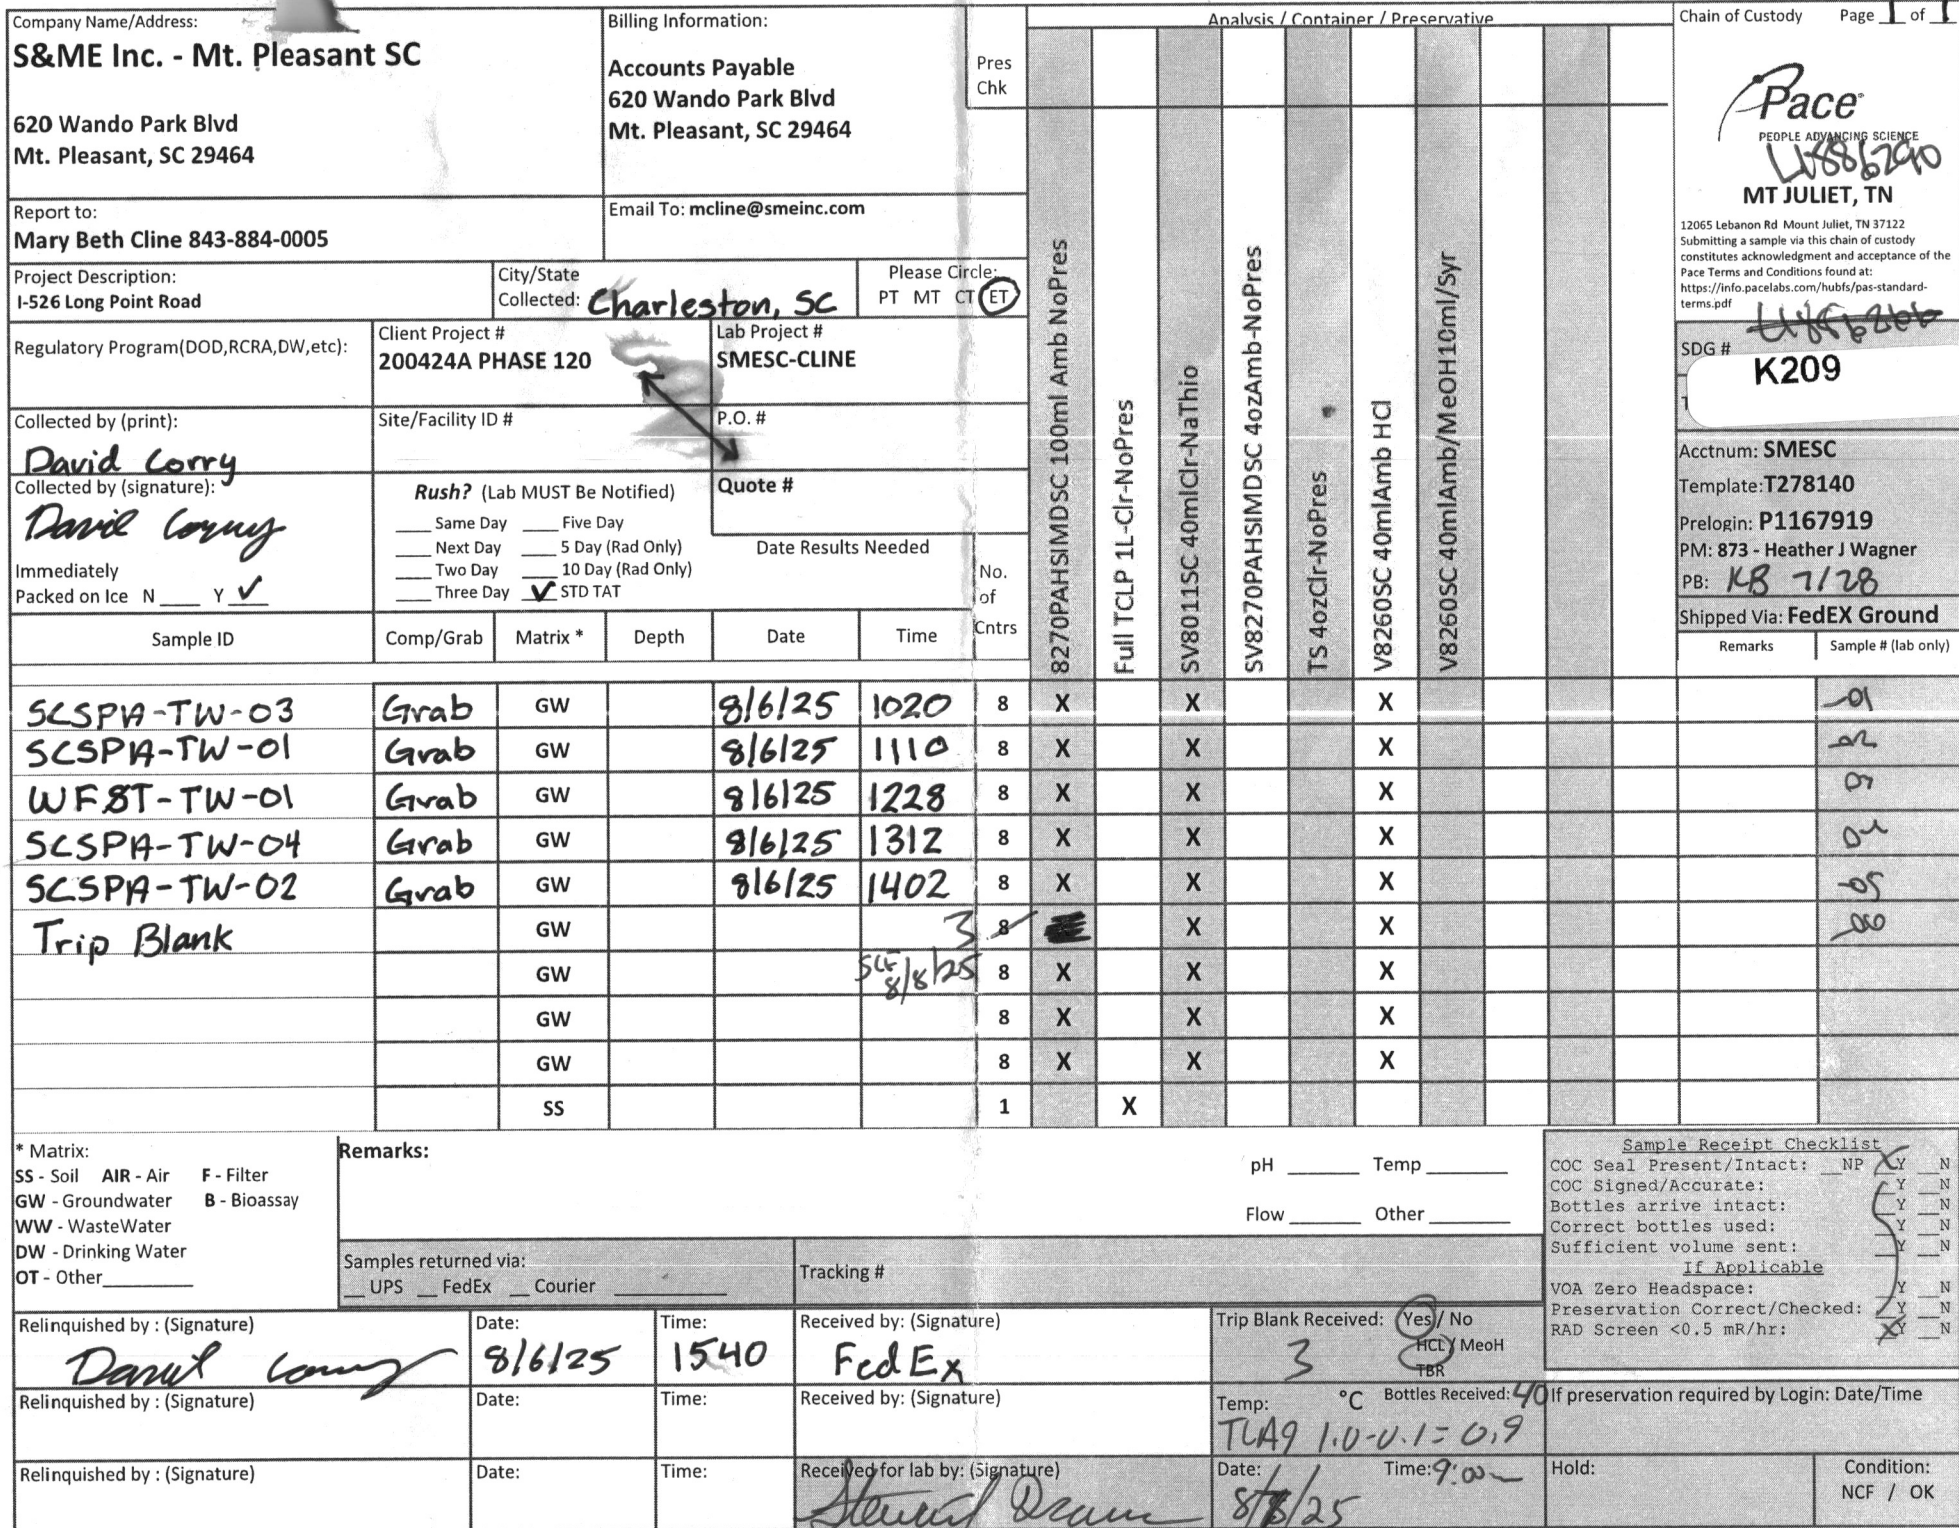 Company Name/Address:
S&ME Inc. - Mt. Pleasant SC
620 Wando Park Blvd
Mt. Pleasant, SC 29464
Billing Information:
Accounts Payable
620 Wando Park Blvd
Mt. Pleasant, SC 29464
Pres
Chk
Analysis / Container / Preservative
Chain of Custody Page 1 of 1
Pace
PEOPLE ADVANCING SCIENCE
L1886290
MT JULIET, TN
12065 Lebanon Rd Mount Juliet, TN 37122
Submitting a sample via this chain of custody
constitutes acknowledgment and acceptance of the
Pace Terms and Conditions found at:
https://info.pacelabs.com/hubfs/pas-standard-
terms.pdf
Report to:
Mary Beth Cline 843-884-0005
Email To: mcline@smeinc.com
Project Description:
I-526 Long Point Road
City/State
Collected: Charleston, SC
Please Circle:
PT MT CT ET
Regulatory Program(DOD,RCRA,DW,etc):
Client Project #
200424A PHASE 120
Lab Project #
SMESC-CLINE
Collected by (print):
David Corry
Site/Facility ID #
P.O. #
Collected by (signature):
David Corry
Rush? (Lab MUST Be Notified)
___ Same Day ___ Five Day
___ Next Day ___ 5 Day (Rad Only)
___ Two Day ___ 10 Day (Rad Only)
___ Three Day ✓ STD TAT
Quote #
Date Results Needed
Immediately
Packed on Ice N ___ Y ✓
No.
of
Cntrs
8270PAHSIMDSC 100ml Amb NoPres
Full TCLP 1L-Clr-NoPres
SV8011SC 40mlClr-NaThio
SV8270PAHSIMDSC 4ozAmb-NoPres
TS 4ozClr-NoPres
V8260SC 40mlAmb HCl
V8260SC 40mlAmb/MeOH10ml/Syr
SDG #
K209
Acctnum: SMESC
Template:T278140
Prelogin: P1167919
PM: 873 - Heather J Wagner
PB: KB 7/28
Shipped Via: FedEX Ground
Sample ID Comp/Grab Matrix * Depth Date Time Remarks Sample # (lab only)
SCSPA-TW-03 Grab GW 8/6/25 1020 8 X X X -01
SCSPA-TW-01 Grab GW 8/6/25 1110 8 X X X -02
WFST-TW-01 Grab GW 8/6/25 1228 8 X X X 03
SCSPA-TW-04 Grab GW 8/6/25 1312 8 X X X 04
SCSPA-TW-02 Grab GW 8/6/25 1402 8 X X X -05
Trip Blank GW 3 8 X X -06
GW 8/8/25 8 X X X
GW 8 X X X
GW 8 X X X
SS 1 X
* Matrix:
SS - Soil AIR - Air F - Filter
GW - Groundwater B - Bioassay
WW - WasteWater
DW - Drinking Water
OT - Other
Remarks:
pH ___ Temp ___
Flow ___ Other ___
Samples returned via:
__ UPS __ FedEx __ Courier
Tracking #
Sample Receipt Checklist
COC Seal Present/Intact: __NP __Y __N
COC Signed/Accurate: __Y __N
Bottles arrive intact: __Y __N
Correct bottles used: __Y __N
Sufficient volume sent: __Y __N
If Applicable
VOA Zero Headspace: __Y __N
Preservation Correct/Checked: __Y __N
RAD Screen <0.5 mR/hr: __Y __N
Relinquished by : (Signature)
David Corry
Date:
8/6/25
Time:
1540
Received by: (Signature)
FedEx
Trip Blank Received: Yes / No
3
HCL / MeoH
TBR
Relinquished by : (Signature)
Date:
Time:
Received by: (Signature)
Temp: °C Bottles Received: 40
TLA9 1.0-0.1=0.9
If preservation required by Login: Date/Time
Relinquished by : (Signature)
Date:
Time:
Received for lab by: (Signature)
Date:
8/8/25
Time: 9:00
Hold:
Condition:
NCF / OK